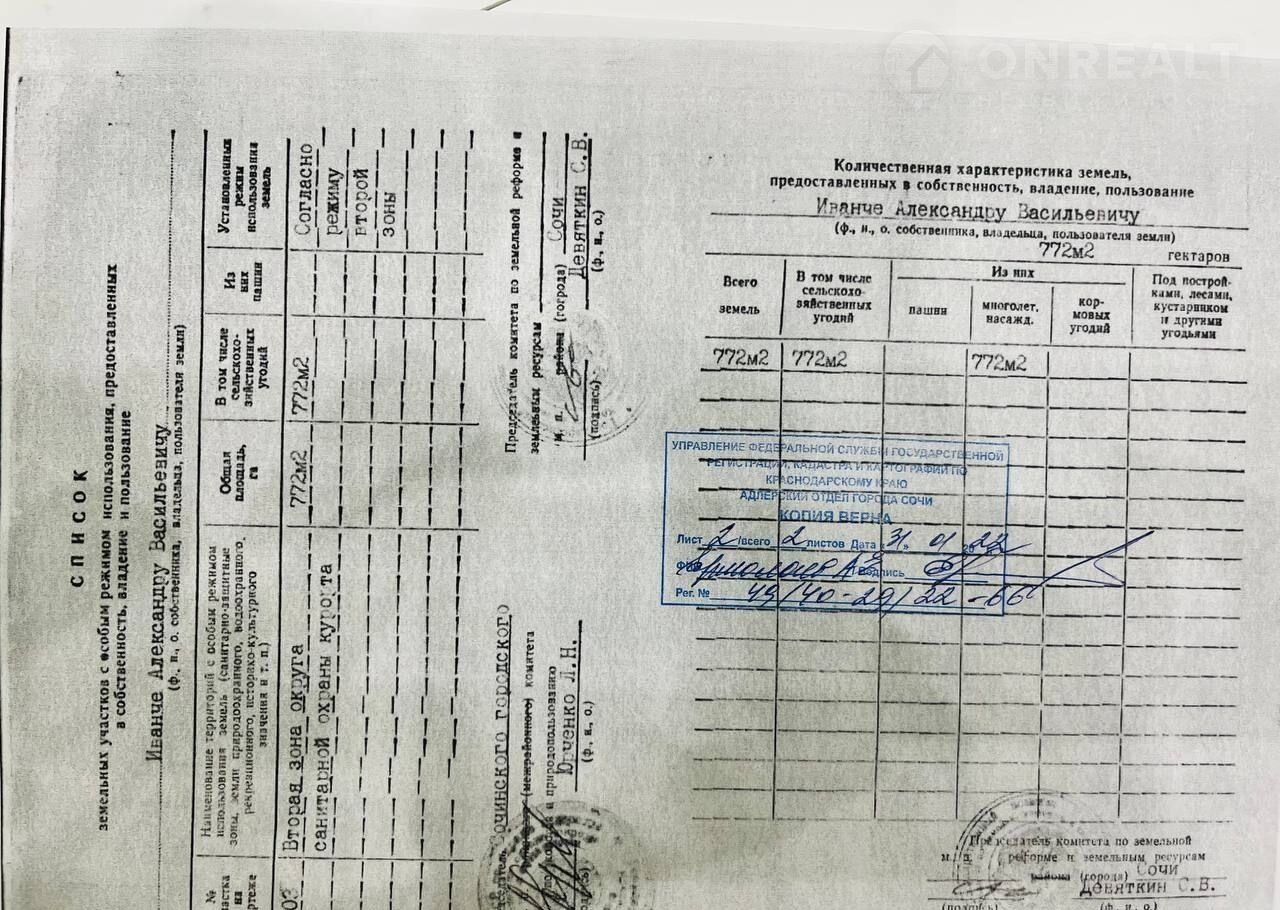 ONREALT
СПИСОК
земельных участков с особым режимом использования, предоставленных
в собственность, владение и пользование
Иванче Александру Васильевичу
(ф., и., о. собственника, владельца, пользователя земли)
№
на
Наименование территорий с особым режимом
использования земель (санитарно-защитные
зоны, земли природоохранного, водоохранного,
рекреационного, историко-культурного
значения и т. п.)
Общая
площадь,
га
В том числе
сельскохо-
зяйственных
угодий
Из
них
пашни
Установленных
режим
использования
земель
03
Вторая зона округа
санитарной охраны курорта
772м2
772м2
Согласно
режиму
второй
зоны
Сочинского городского
(межрайонного) комитета
и природопользованию
Юрченко Л.Н.
(ф., и., о.)
Председатель комитета по земельной реформе и
земельным ресурсам
м. п. района (города) Сочи
Девяткин С.В.
(подпись)
(ф., и., о.)
Количественная характеристика земель,
предоставленных в собственность, владение, пользование
Иванче Александру Васильевичу
(ф., и., о. собственника, владельца, пользователя земли)
772м2 гектаров
Всего
земель
В том числе
сельскохо-
зяйственных
угодий
Из них
пашни
многолет.
насажд.
кор-
мовых
угодий
Под построй-
ками, лесами,
кустарником
и другими
угодьями
772м2 772м2 772м2
УПРАВЛЕНИЕ ФЕДЕРАЛЬНОЙ СЛУЖБЫ ГОСУДАРСТВЕННОЙ
РЕГИСТРАЦИИ, КАДАСТРА И КАРТОГРАФИИ ПО
КРАСНОДАРСКОМУ КРАЮ
АДЛЕРСКИЙ ОТДЕЛ ГОРОДА СОЧИ
КОПИЯ ВЕРНА
Лист 2 /всего 2 листов Дата «31» 01 2022
Подпись
Рег. № 49/40-29/22-66
Председатель комитета по земельной
м. п. реформе и земельным ресурсам
района (города) Сочи
Девяткин С.В.
(подпись) (ф., и., о.)